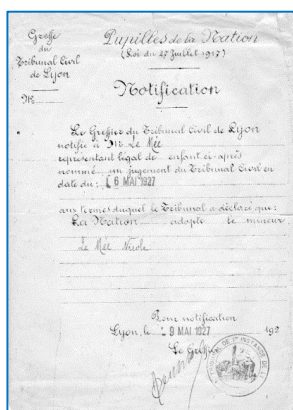 Greffe
du
Tribunal Civil
de Lyon
Pupilles de la Nation
(Loi du 27 Juillet 1917)
Notification
Le Greffier du Tribunal Civil de Lyon
notifie à Mr. Le Mée
représentant légal de enfant ci-après
nommé, un jugement du Tribunal Civil en
date du: 6 MAI 1927
aux termes duquel le Tribunal a déclaré que:
La Nation adopte le mineur
Le Mée Nicole
Pour notification
Lyon, le 9 MAI 1927 192
Le Greffier
TRIBUNAL DE 1re INSTANCE DE